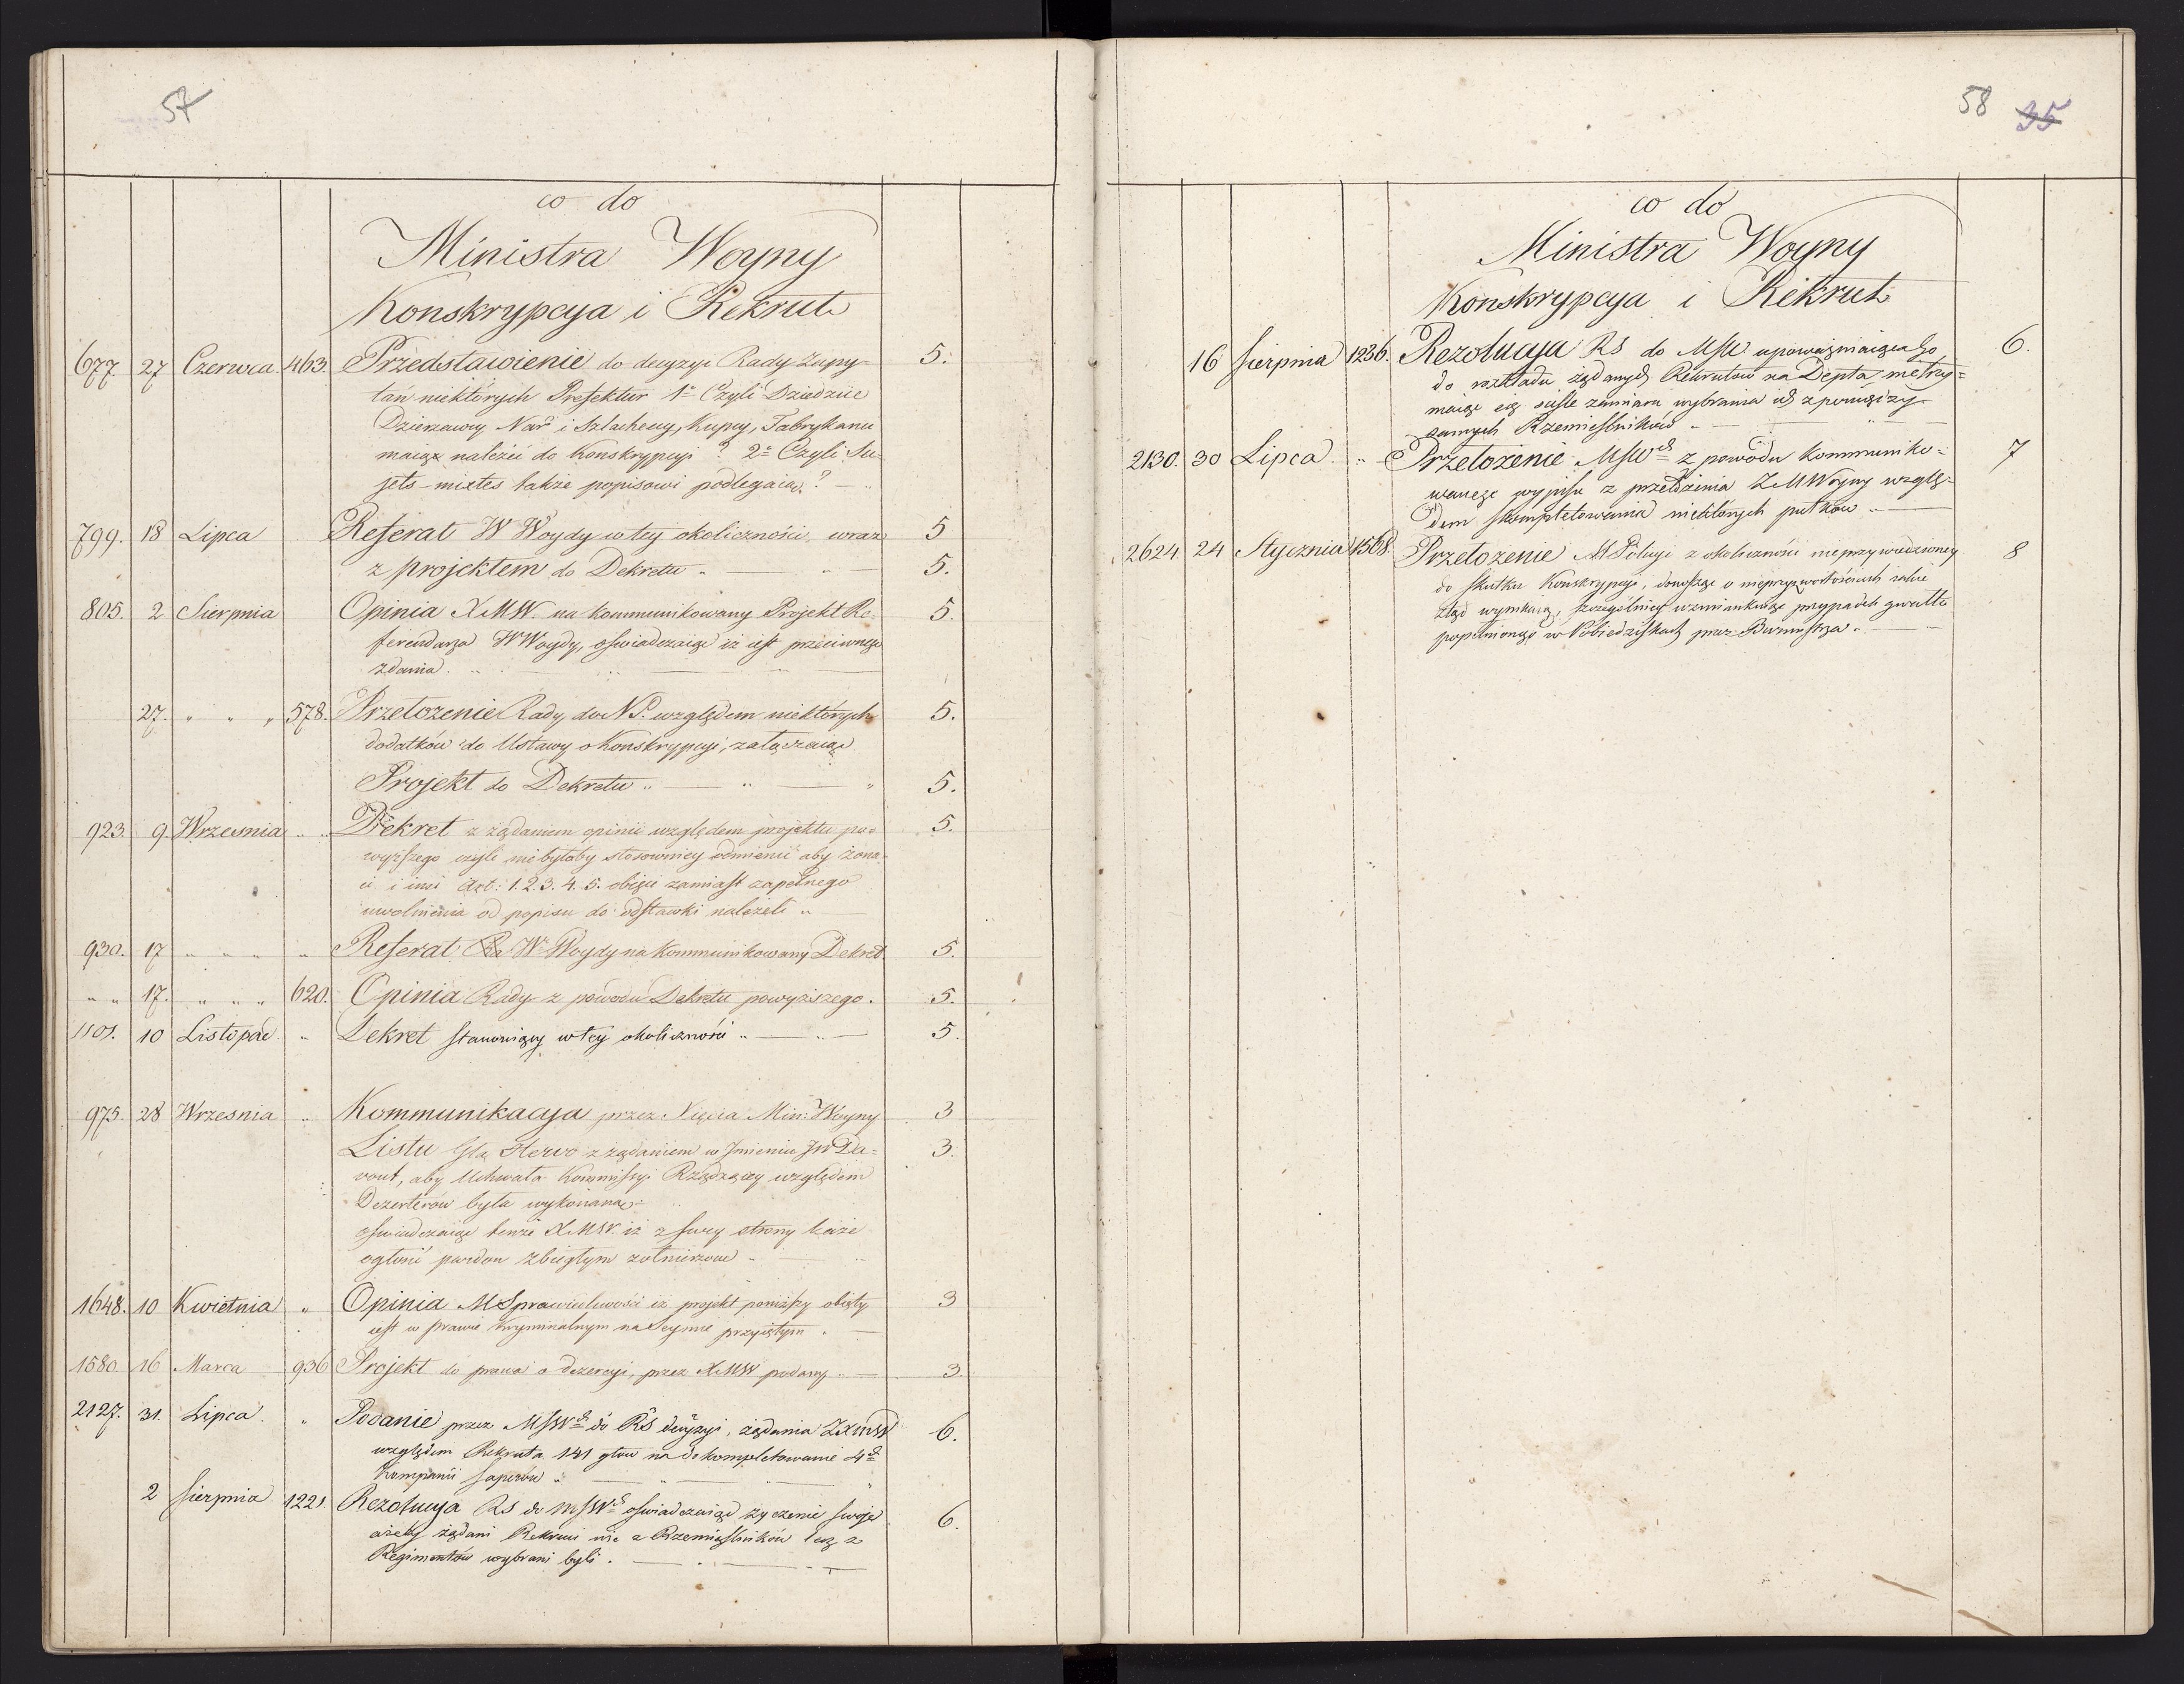 57
co do
Ministra Woyny
Konskrypcya i Rekrut
677. 27 Czerwca 463. Przedstawienie do decyzyi Rady Zapy- 5.
tań niektórych Prefektur 1º Czyli Dziedzice
Dzierzawcy Nar i Szlacheccy, Kupcy, Fabrykanci
maią należeć do Konskrypcyi? 2º Czyli Su-
jets-mixtes także popisowi podlegaią? —
799. 18 Lipca Referat W Woydy w tey okoliczności, wraz 5
z projektem do Dekretu " — 5.
805. 2 Sierpnia Opinia XMW. na kommunikowany Projekt Re- 5.
ferendarza W Woydy, oswiadczaiąc iż iest przeciwnego
zdania.
27. " " " 578. Przełożenie Rady do NP. względem niektórych 5.
dodatków do Ustawy o Konskrypcyi, załączaiąc
Projekt do Dekretu " — " — " 5.
923. 9. Wrzesnia " Dekret z żądaniem opinii względem projektu po- 5.
wyższego czyli niebyłoby stosowniey odmienić aby żona-
ci i inni Art: 1. 2. 3. 4. 5. obięci zamiast zupełnego
uwolnienia od popisu do odstawki należeli "
930. 17 " " " " Referat Ra W Woydy na kommunikowany Dekret 5.
" " 17. " " " 620. Opinia Rady z powodu Dekretu powyższego. 5.
1101. 10 Listopad. " Dekret stanowiący w tey okoliczności " — " — 5.
975. 28 Wrzesnia " Kommunikacya przez Xięcia Min: Woyny 3
Listu Gła Hervo z żądaniem w Jmieniu JW Da- 3.
vout, aby Uchwała Kommissyi Rządzącey względem
Dezerterów była wykonana
oswiadczaiąc tenże XMW. iż z swey strony każe
ogłosić pardon zbiegłym żołnierzom
1648. 10 Kwietnia " Opinia MSprawiedliwości iż projekt poniższy obięty 3
iest w prawie kryminalnym na Seymie przyiętym. —
1580. 16 Marca 936 Projekt do prawa o dezercyi, przez XMW podany " — 3.
2127. 31. Lipca. " Podanie przez MSW do RS decyzyi, żądania ZXMW 6.
względem Rekruta 141 głów na dokompletowanie 4ch
Kompanii saperów "
2 Sierpnia 1221. Rezolucya RS do MSW oswiadczaiąc życzenie swoje 6.
ażeby żądani Rekruci nie z Rzemieślników lecz z
Regimentów wybrani byli. —
58 35
co do
Ministra Woyny
Konskrypcya i Rekrut
16 Sierpnia 1236. Rezolucya RS do MSW upoważniaiąca Go 6.
do rozkładu żądanych Rekrutów na Depta, nietrzy-
maiąc się ściśle zamiaru wybrania ich z pomiędzy
samych Rzemieślników —
2130. 30 Lipca. " Przełożenie MSW z powodu kommuniko- 7
wanego wypisu z przełożenia ZMWoyny wzglę-
dem skompletowania niektórych pułków "
2624 24 Stycznia 1568. Przełożenie MPolicyi z okoliczności nieprzywiedzioney 8
do skutku Konskrypcyi, donosząc o nieprzyzwoitościach iakie
ztąd wynikaią, szczególniey wzmiankuiąc przypadek gwałtu
popełnionego w Pobiedziskach przez Burmistrza.